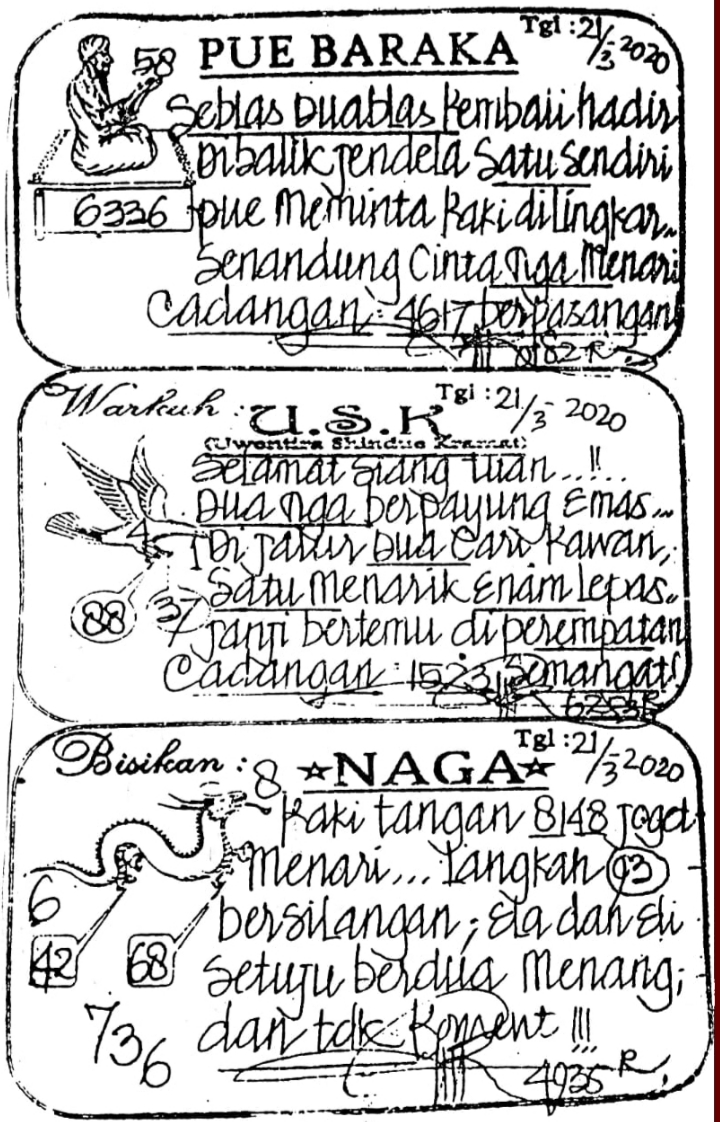 Tgl : 21/3-2020
PUE BARAKA
58
Seblas Duablas Kembali hadir
Dibalik jendela Satu Sendiri
6336
pue Meminta Kaki dilingkar..
Senandung Cinta Tiga Menari
Cadangan : 4617 berpasangan
0182 R
Warkuh :
U.S.K
Tgl : 21/3-2020
(Uwentira Shindue Kramat)
Selamat siang tuan...!!...
Dua Tiga berpayung Emas...
4
1
Di jalur Dua Cari Kawan,
88
37
Satu Menarik Enam Lepas..
janji bertemu di perempatan
Cadangan : 1523 Semangat!
6253 R
Bisikan :
☆NAGA☆
Tgl : 21/3-2020
8
Kaki tangan 8148 joget
Menari... Langkah 93
6
bersilangan ; Ela dan Eli
42
68
Setuju berdua Menang;
736
dan tdk Konsent !!!
4935 R